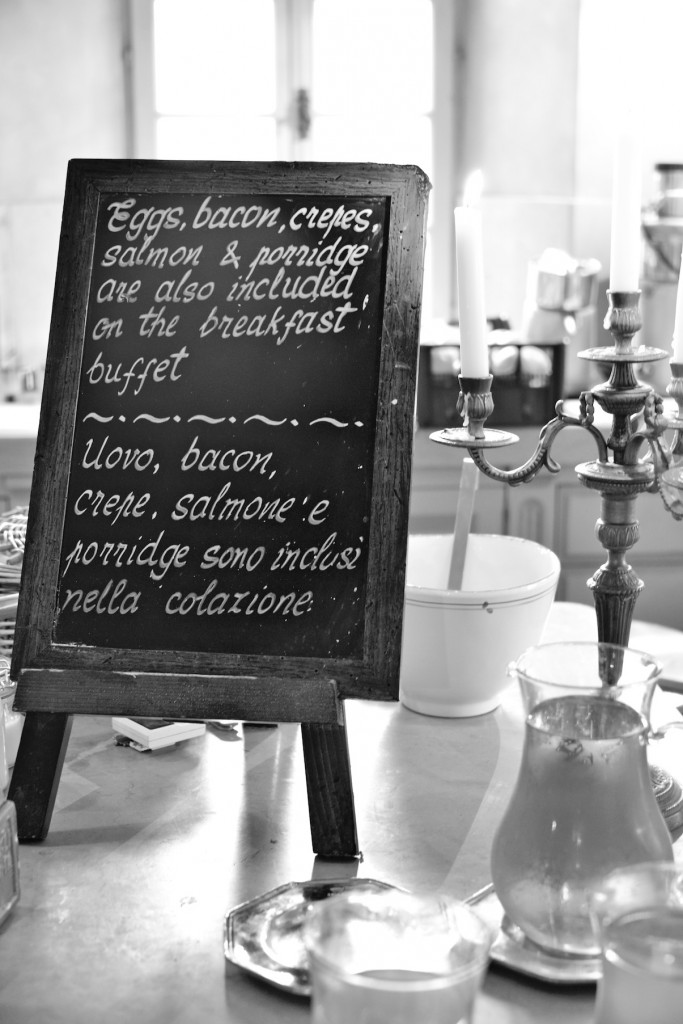 Eggs, bacon, crepes,
salmon & porridge
are also included
on the breakfast
buffet
~.~.~.~.~.
Uovo, bacon,
crepe, salmone e
porridge sono inclusi
nella colazione.